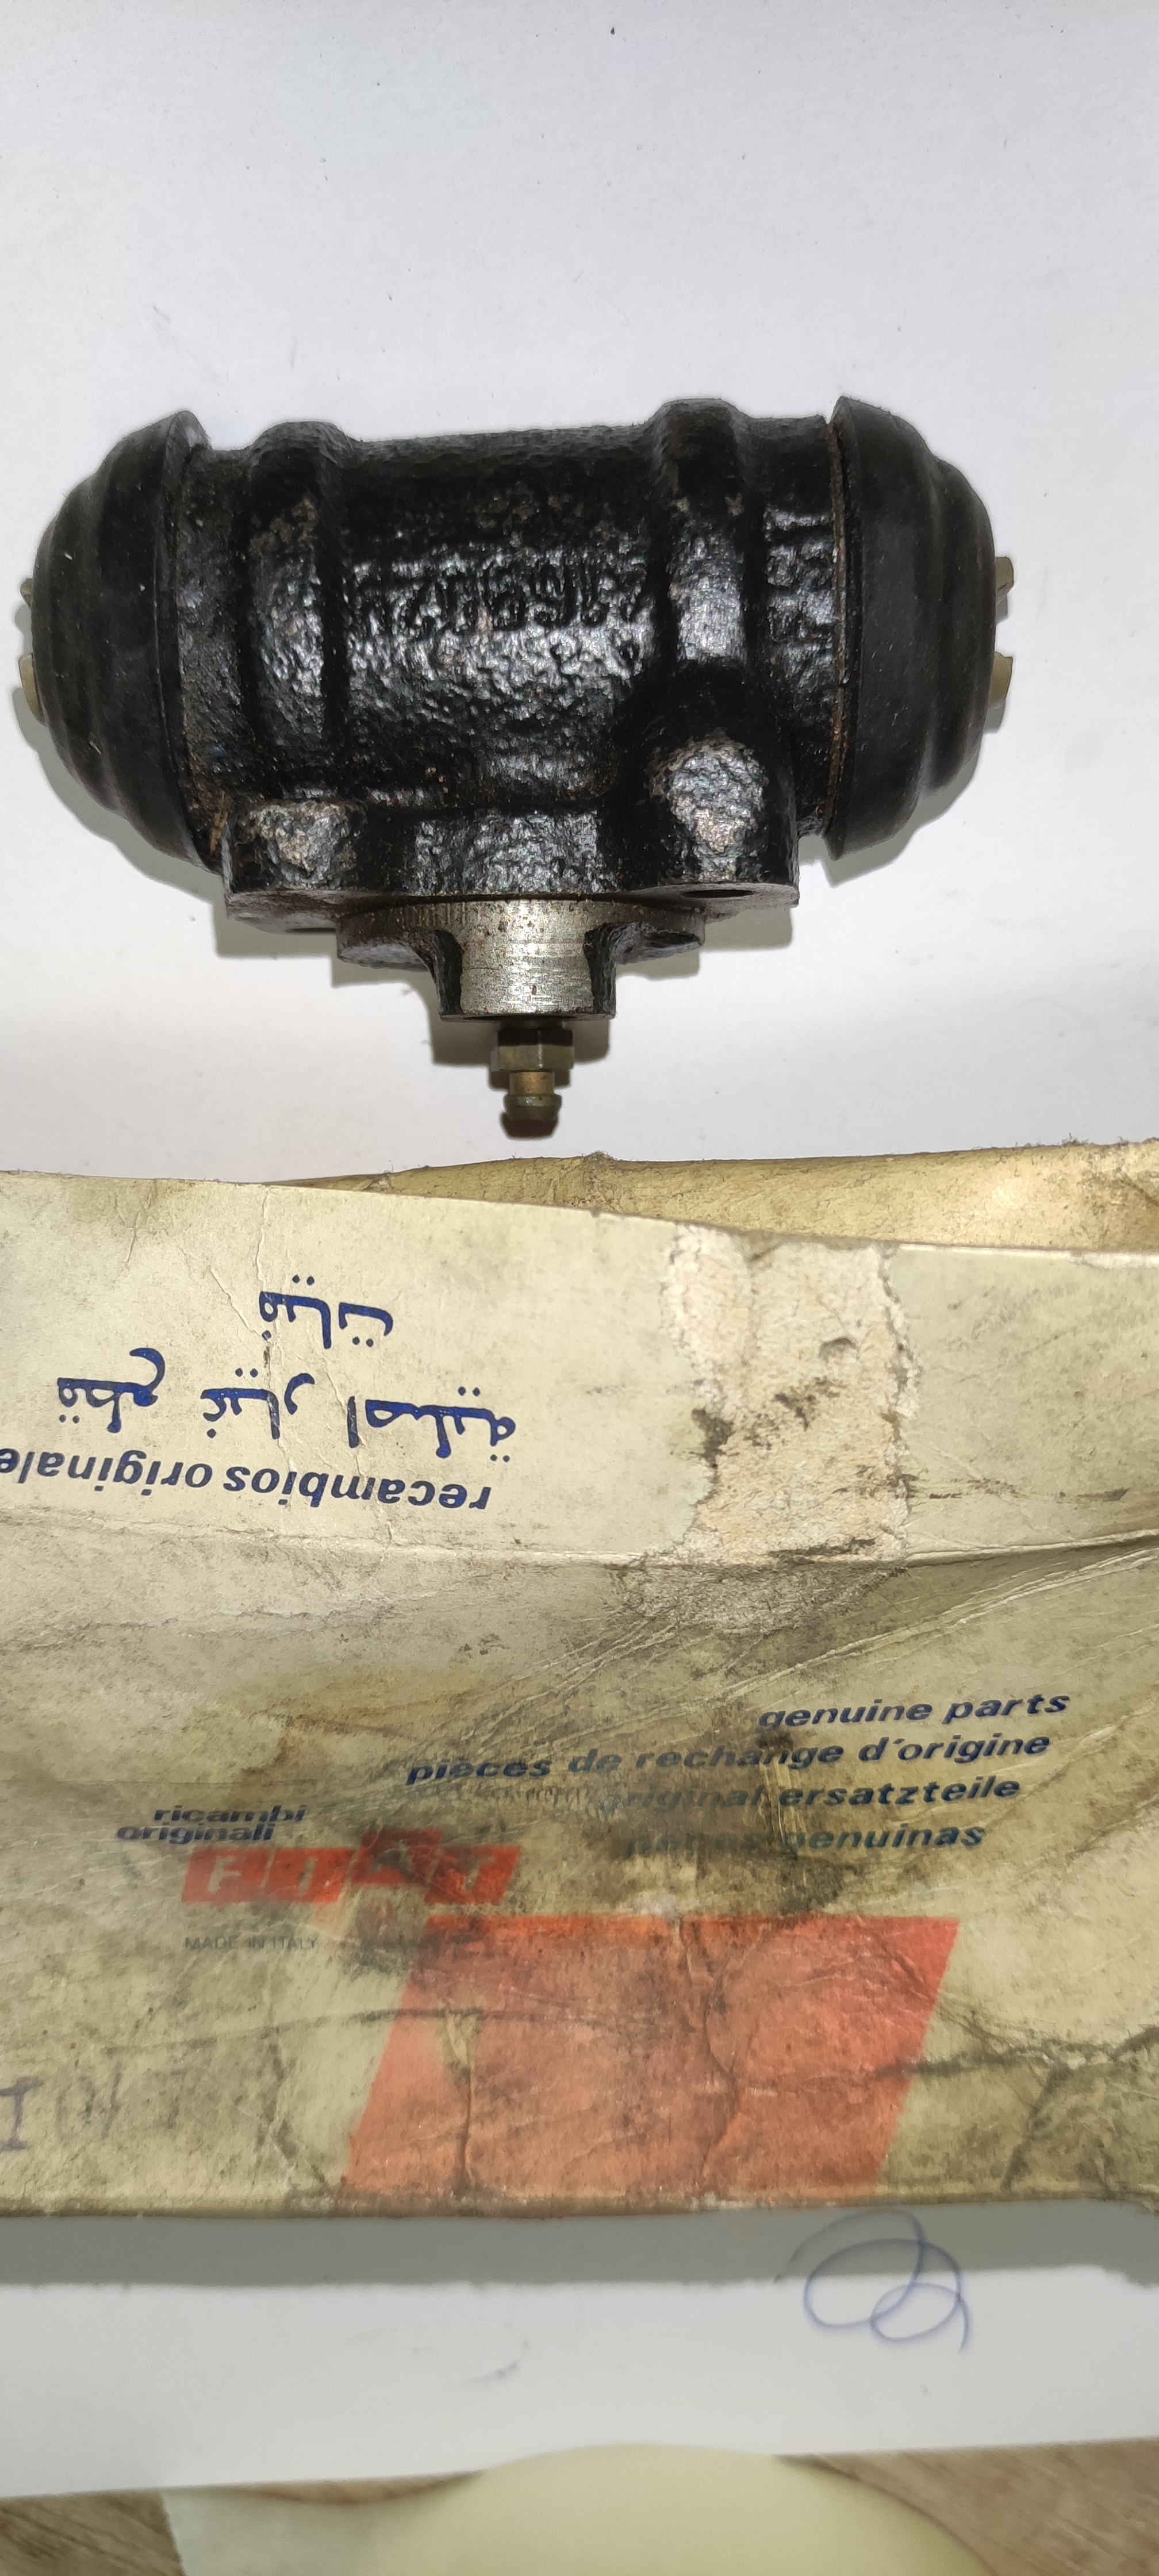 recambios originale
قطع غيار اصلية
فيات
genuine parts
pièces de rechange d'origine
original ersatzteile
genuinas
ricambi
originali
FIAT
MADE IN ITALY